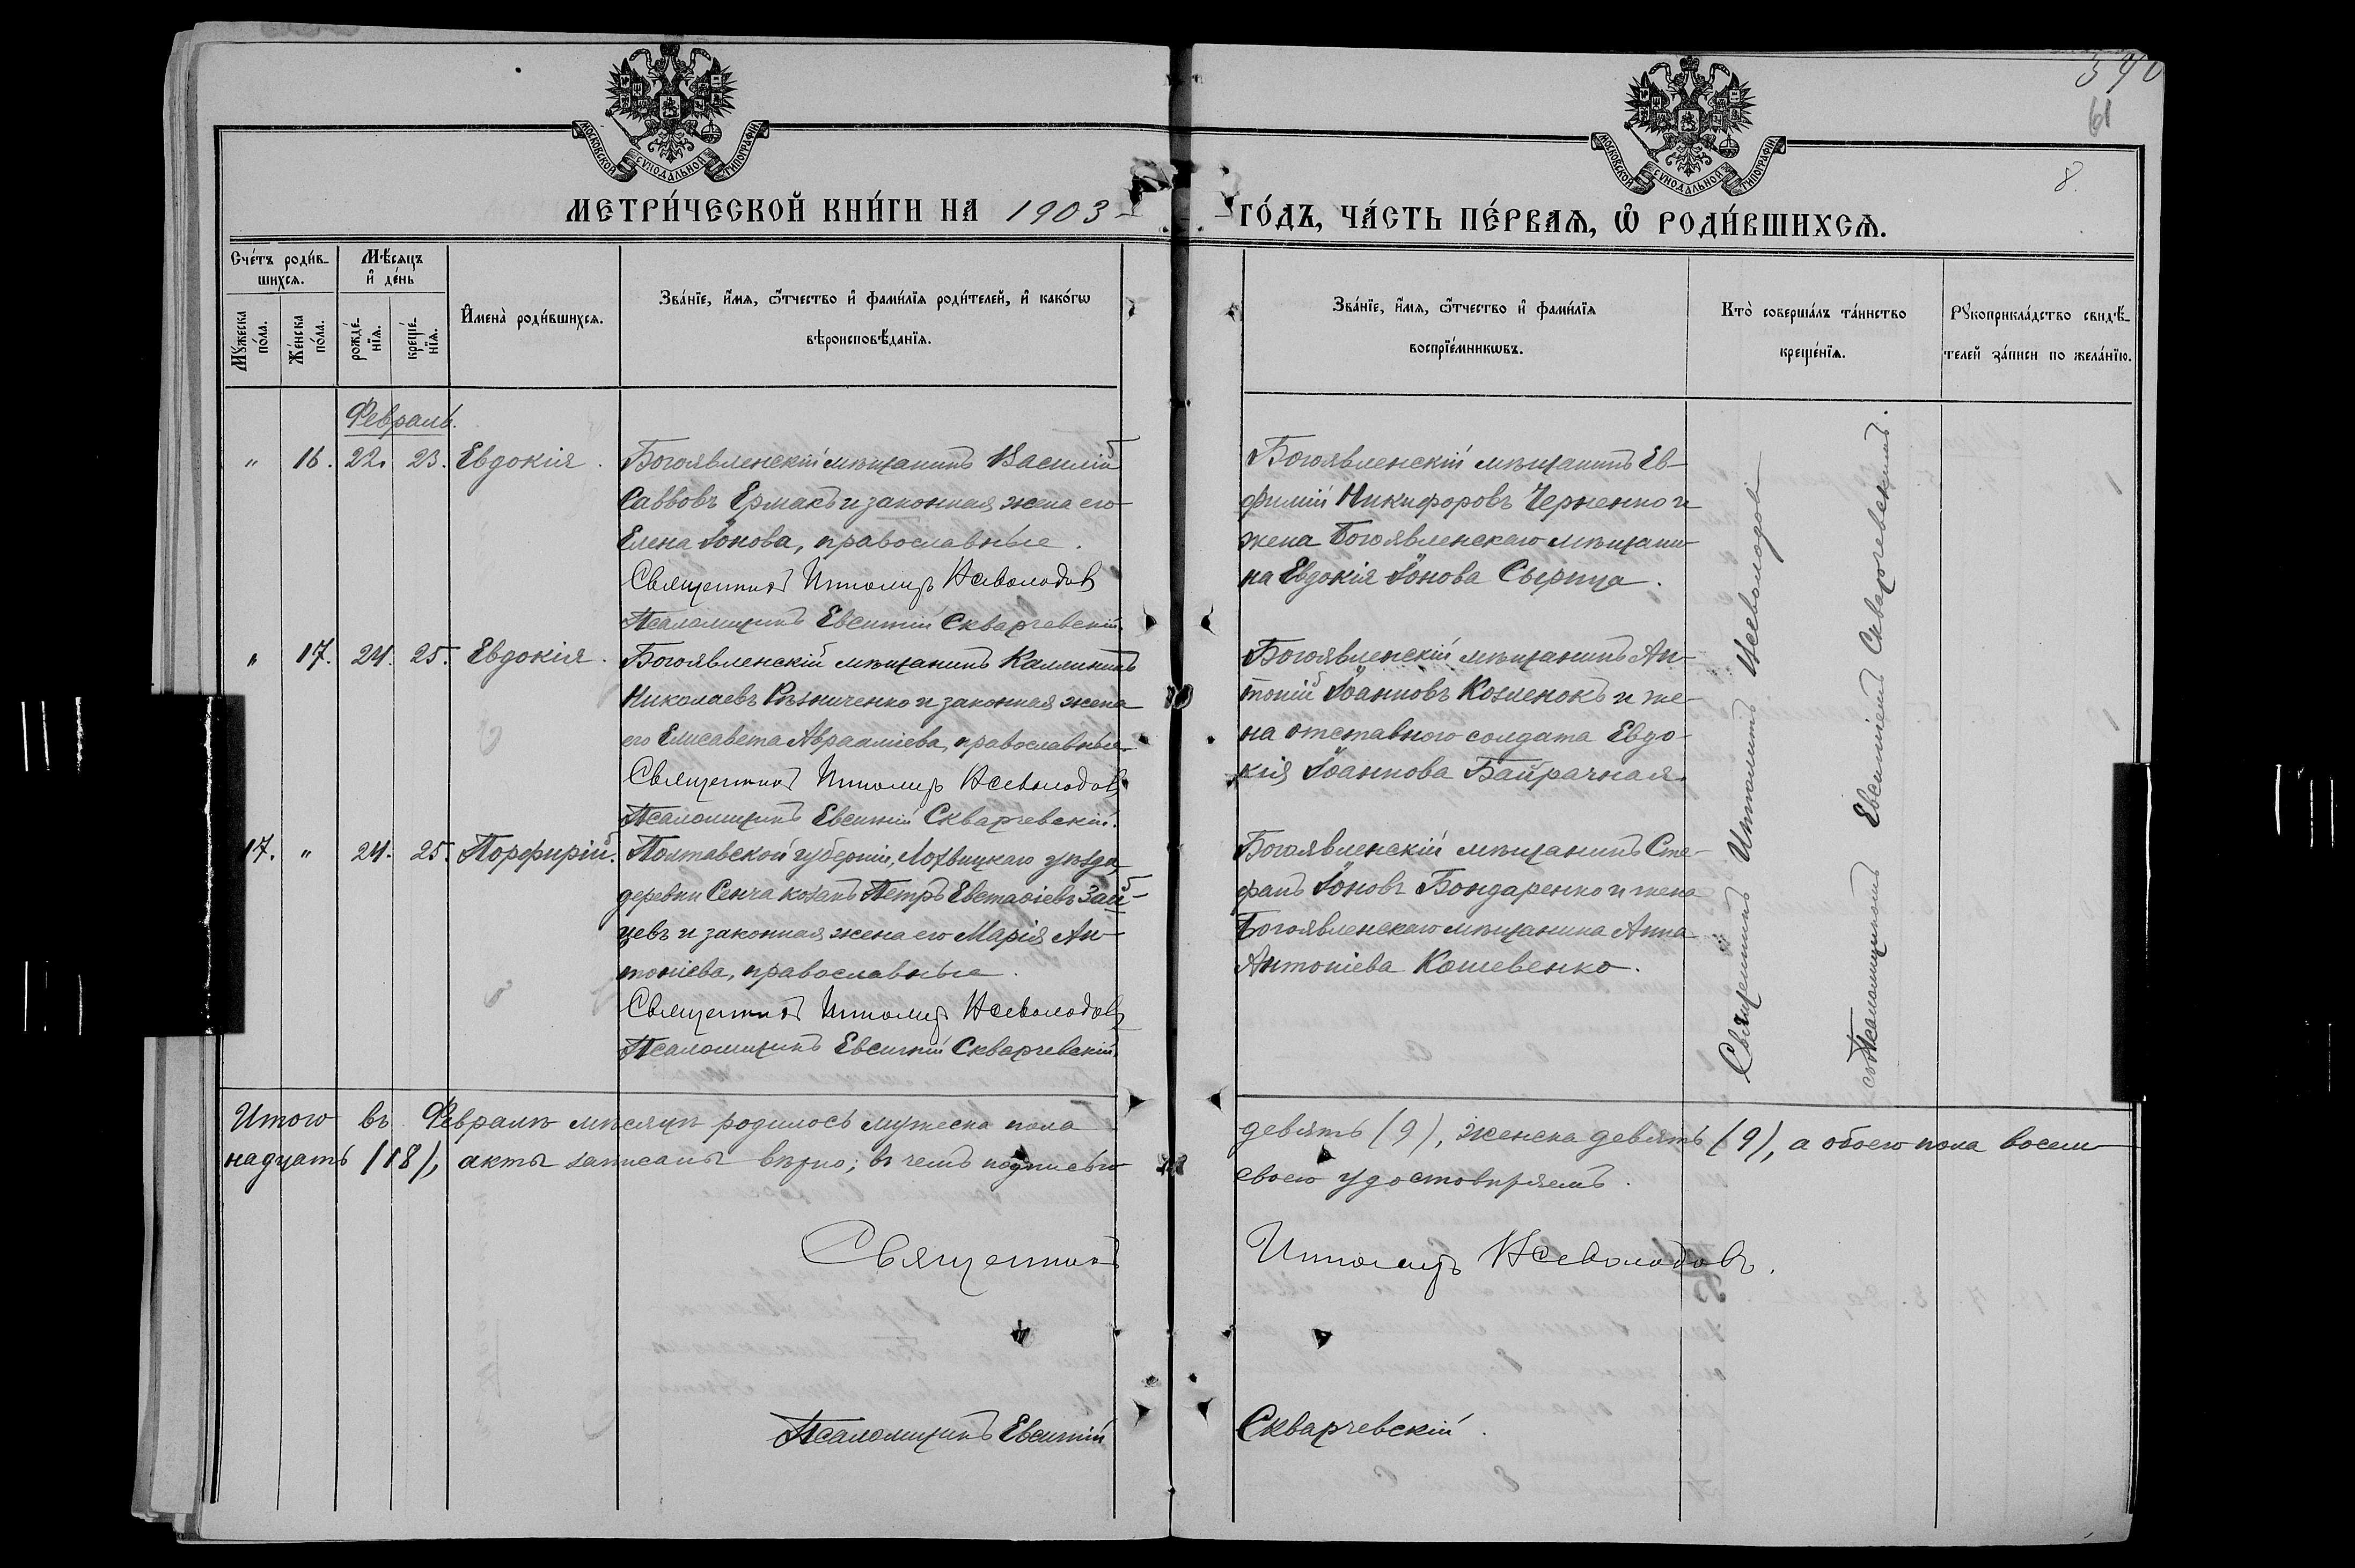 540
61
8.
МОСКОВСКОЙ СУНОДАЛЬНОЙ ТИПОГРАФІИ
МОСКОВСКОЙ СУНОДАЛЬНОЙ ТИПОГРАФІИ
МЕТРИ́ЧЕСКОЙ КНИ́ГИ НА 1903
ГО́ДЪ, ЧА́СТЬ ПЕ́РВАѦ, Ѡ҆ РОДИ́ВШИХСѦ.
Сче́тъ роди́в-
шихсѧ.
Мꙋжеска по́ла.
Же́нска по́ла.
Мѣ́сѧцъ
и҆ де́нь
рожде́-
нїѧ.
креще́-
нїѧ.
И҆мена̀ роди́вшихсѧ.
Зва́нїе, и҆́мѧ, ѻ҆́тчество и҆ фами́лїѧ роди́телей, и҆ како́гѡ
вѣроисповѣ́данїѧ.
Зва́нїе, и҆́мѧ, ѻ҆́тчество и҆ фами́лїѧ
воспрїе́мникѡвъ.
Кто̀ соверша́лъ та́инство
креще́нїѧ.
Рꙋкоприкла́дство свидѣ́-
телей за́писи по жела́нїю.
Февраль.
" 16. 22. 23. Евдокія.
Богоявленскій мѣщанинъ Василій
Саввовъ Ермакъ и законная жена его
Елена Іонова, православные.
Священникъ Ипполитъ Всеволодовъ
Псаломщикъ Евсигній Скварчевскій.
Богоявленскій мѣщанинъ Ев-
фимій Никифоровъ Черненко и
жена Богоявленскаго мѣщани-
на Евдокія Іонова Сырица.
" 17. 24. 25. Евдокія.
Богоявленскій мѣщанинъ Каллиникъ
Николаевъ Рѣзниченко и законная жена
его Елисавета Авраамiева, православные.
Священникъ Ипполитъ Всеволодовъ
Псаломщикъ Евсигній Скварчевскій.
Богоявленскій мѣщанинъ Ан-
тоній Іоанновъ Козленокъ и же-
на отставного солдата Евдо-
кія Іоаннова Байрачная.
17. " 24. 25. Порфирій.
Полтавской губерніи, Лохвицкаго уѣзда,
деревни Сенча козакъ Петръ Евстафіевъ Зай-
цевъ и законная жена его Марія Ан-
тоніева, православные.
Священникъ Ипполитъ Всеволодовъ
Псаломщикъ Евсигній Скварчевскій.
Богоявленскій мѣщанинъ Сте-
фанъ Іоновъ Бондаренко и жена
Богоявленскаго мѣщанина Анна
Антоніева Кошевенко.
Священникъ Ипполитъ Всеволодовъ
съ Псаломщикомъ Евсигніемъ Скварчевскимъ.
Итого въ Февралѣ мѣсяцѣ родилось мужеска пола девять (9), женска девять (9), а обоего пола восем-
надцать (18), акты записаны вѣрно; въ чемъ подписью своею удостовѣряемъ.
Священникъ Ипполитъ Всеволодовъ.
Псаломщикъ Евсигній Скварчевскій.